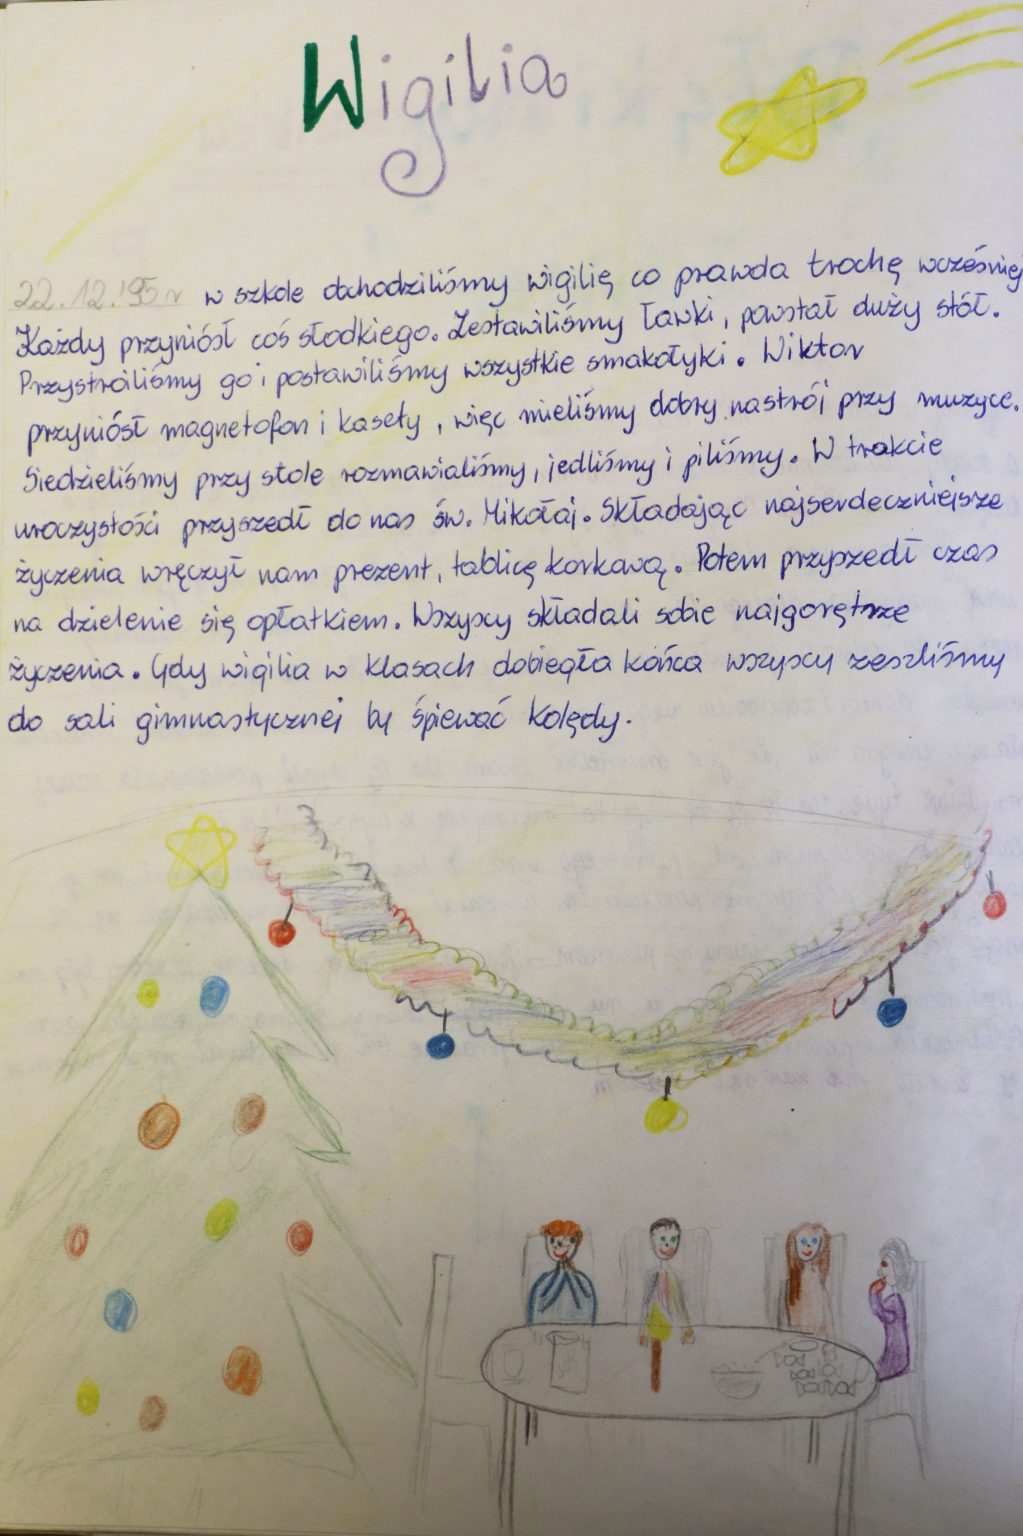 Wigilia
22.12.'95r w szkole obchodziliśmy wigilię co prawda trochę wcześniej
Każdy przyniósł coś słodkiego. Zestawiliśmy ławki, powstał duży stół.
Przystroiliśmy go i postawiliśmy wszystkie smakołyki. Wiktor
przyniósł magnetofon i kasety, więc mieliśmy dobry nastrój przy muzyce.
Siedzieliśmy przy stole rozmawialiśmy, jedliśmy i piliśmy. W trakcie
uroczystości przyszedł do nas św. Mikołaj. Składając najserdeczniejsze
życzenia wręczył nam prezent, tablicę korkową. Potem przyszedł czas
na dzielenie się opłatkiem. Wszyscy składali sobie najgorętsze
życzenia. Gdy wigilia w klasach dobiegła końca wszyscy zeszliśmy
do sali gimnastycznej by śpiewać kolędy.